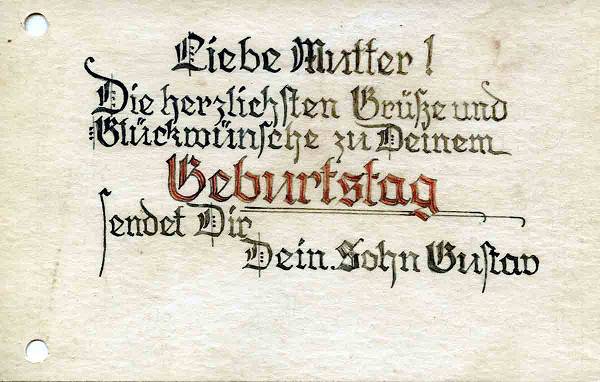 Liebe Mutter!
Die herzlichsten Grüße und
Glückwünsche zu Deinem
Geburtstag
sendet Dir
Dein Sohn Gustav